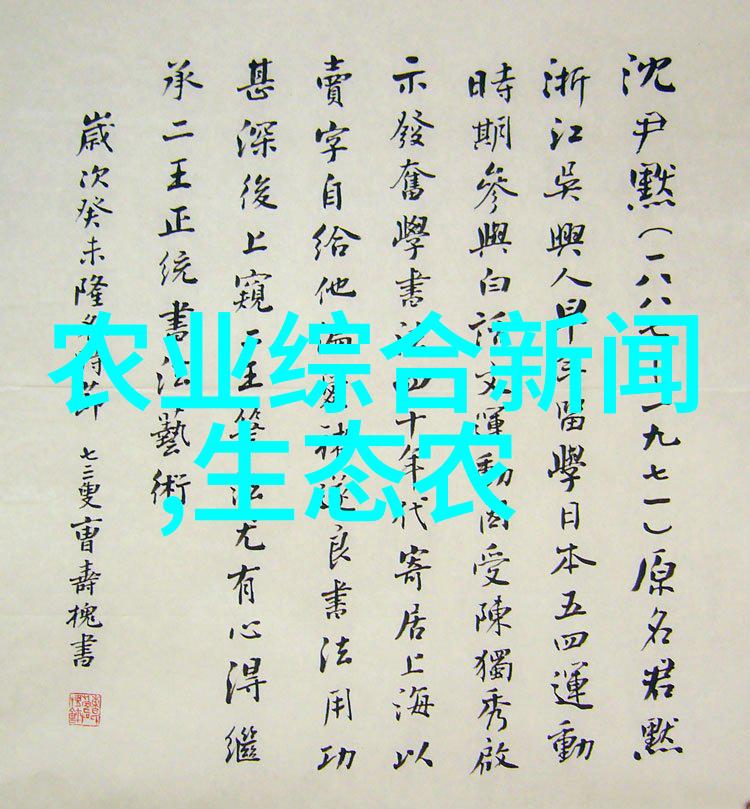 沈尹默(一八八七—一九七一)原名君默
浙江吳興人早年留學日本五四運動
時期參與白話文運動因受陳獨秀啟
示發奮學書法四十年代寄居上海以
賣字自給他遂良書法用功
甚深後上窺二王筆法尤有心得繼
承二王正統書法藝術
歲次癸未隆冬時節 七三叟曹壽槐書
农业综合新闻
,生态农